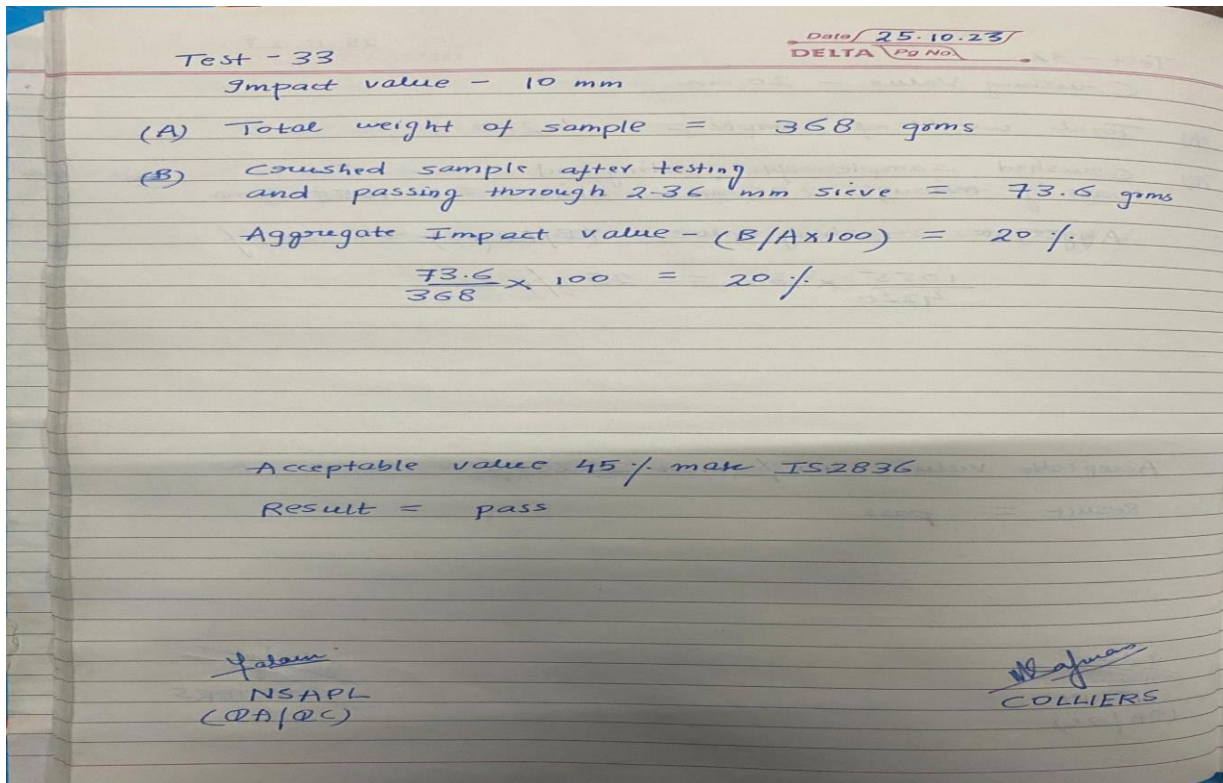 Date 25.10.23
DELTA Pg No
Test - 33
Impact value - 10 mm
(A) Total weight of sample = 368 grms
(B) Crushed sample after testing
and passing through 2.36 mm sieve = 73.6 grms
Aggregate Impact value - (B/A×100) = 20 %
73.6/368 × 100 = 20 %
Acceptable value 45 % max IS2836
Result = pass
NSAPL
(QA/QC)
COLLIERS